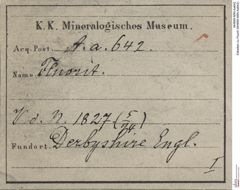 K. K. Mineralogisches Museum.
Acq. Post. A.a. 642.
Name Fluorit.
V. d. N. 1827 (5/74.)
Fundort. Derbyshire Engl.
I